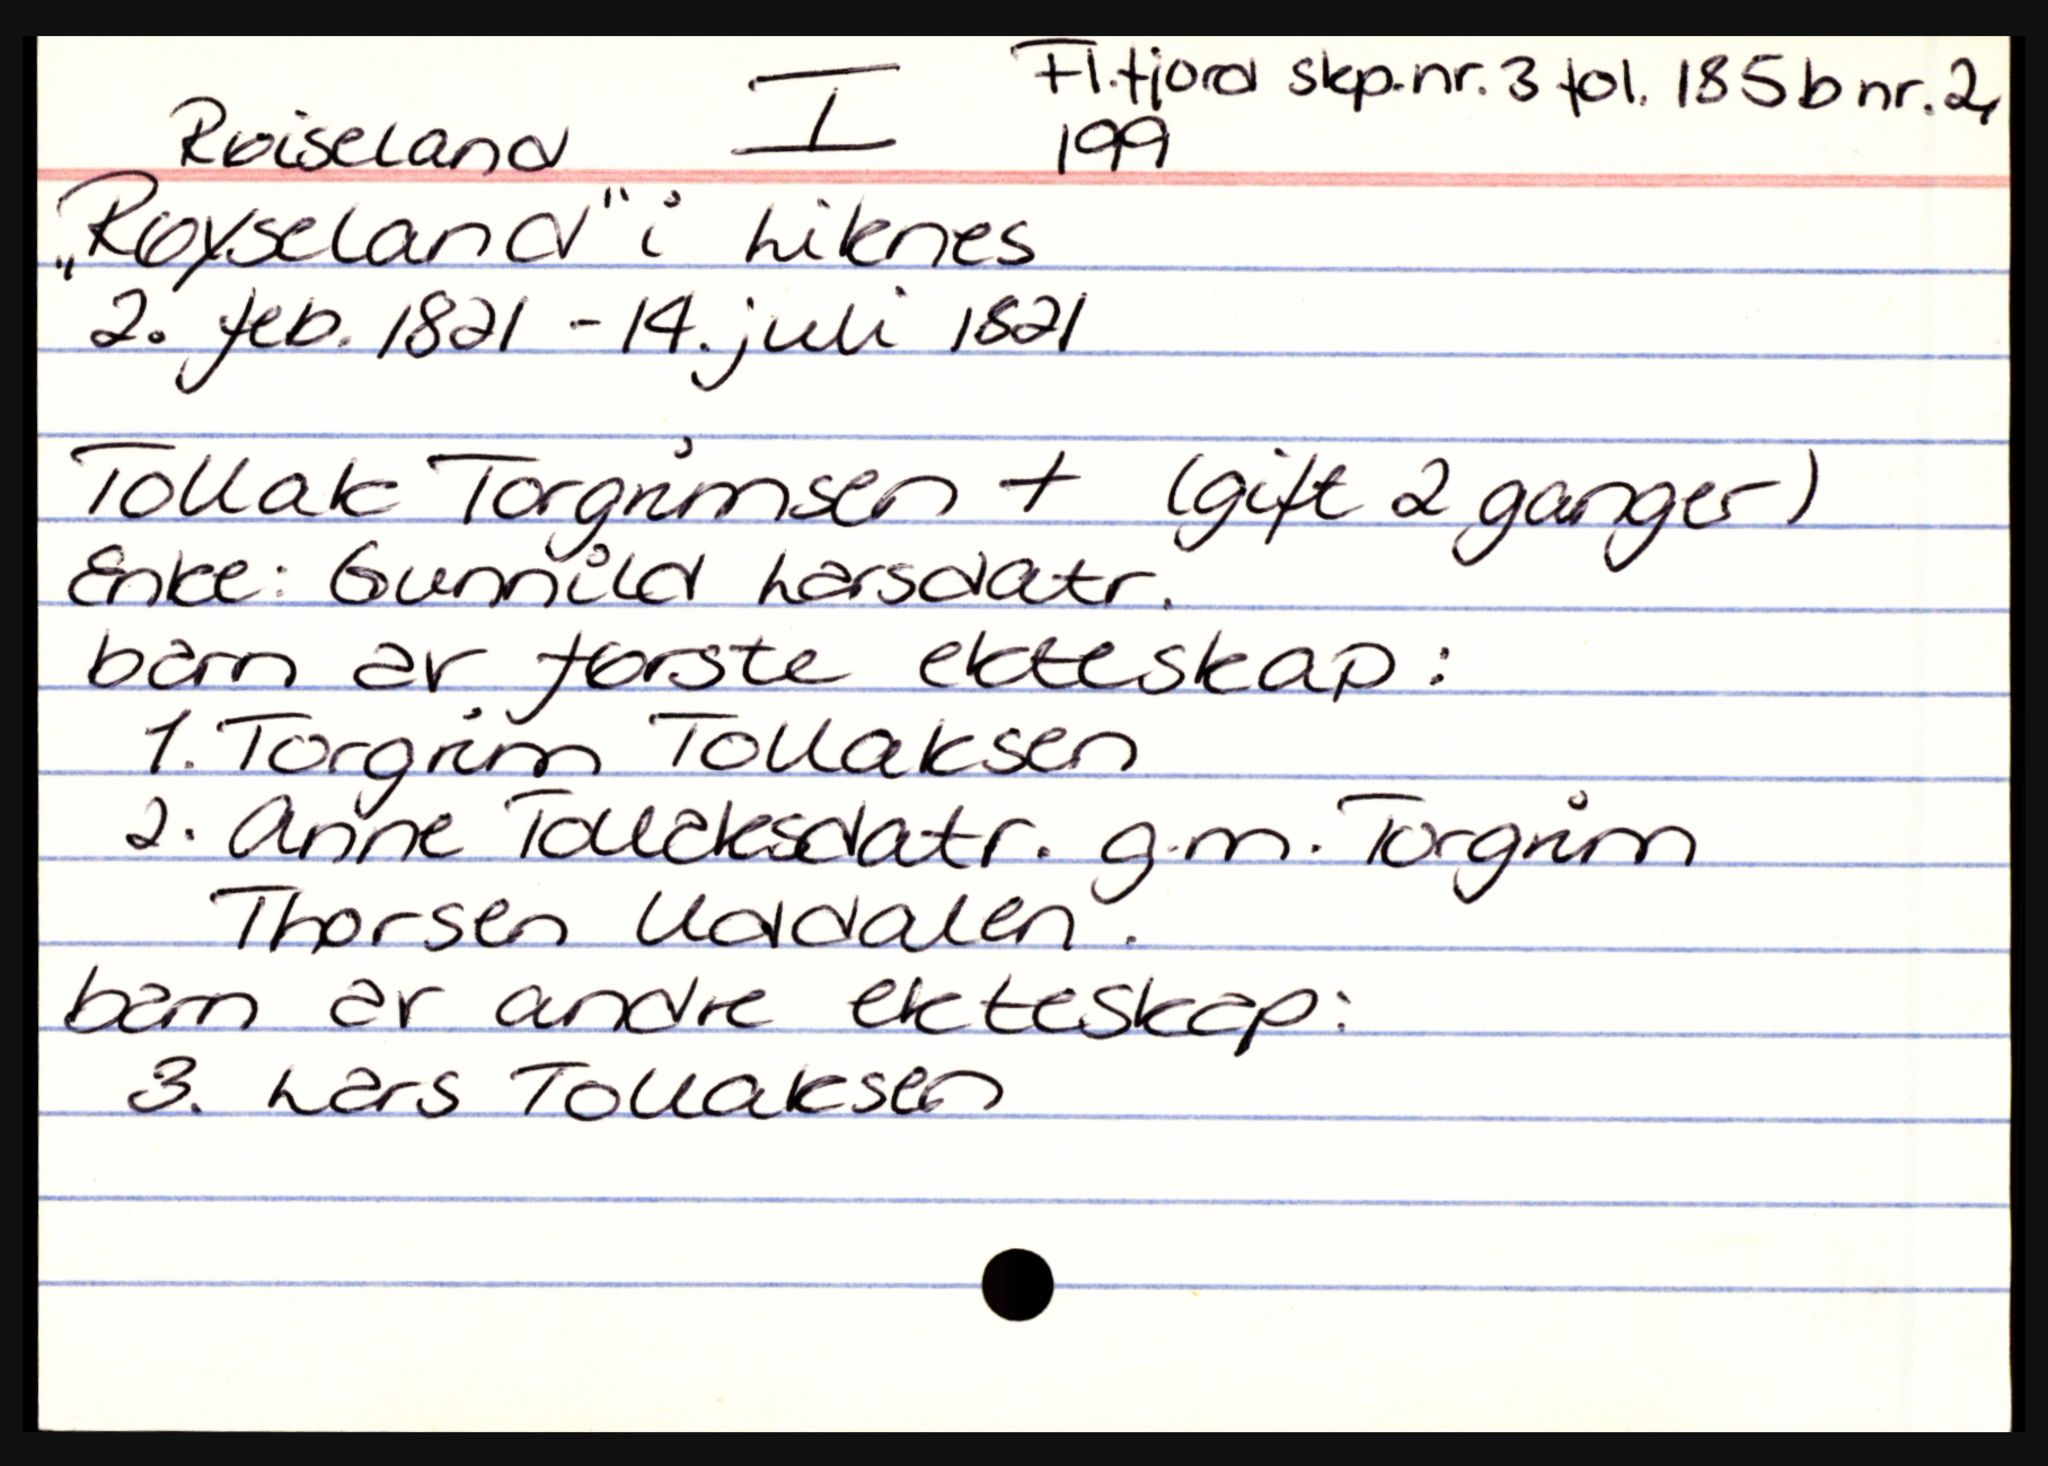 Fl.fjord skp.nr. 3 fol. 185b nr. 2,
Røiseland I 199
„Røyseland" i Liknes
2. feb. 1821 - 14. juli 1821
Tollak Torgrimsen + (gift 2 ganger)
Enke: Gunnild Larsdatr.
barn av første ekteskap:
1. Torgrim Tollaksen
2. Anne Tollaksdatr. g.m. Torgrim
Thorsen Uddalen.
barn av andre ekteskap:
3. Lars Tollaksen